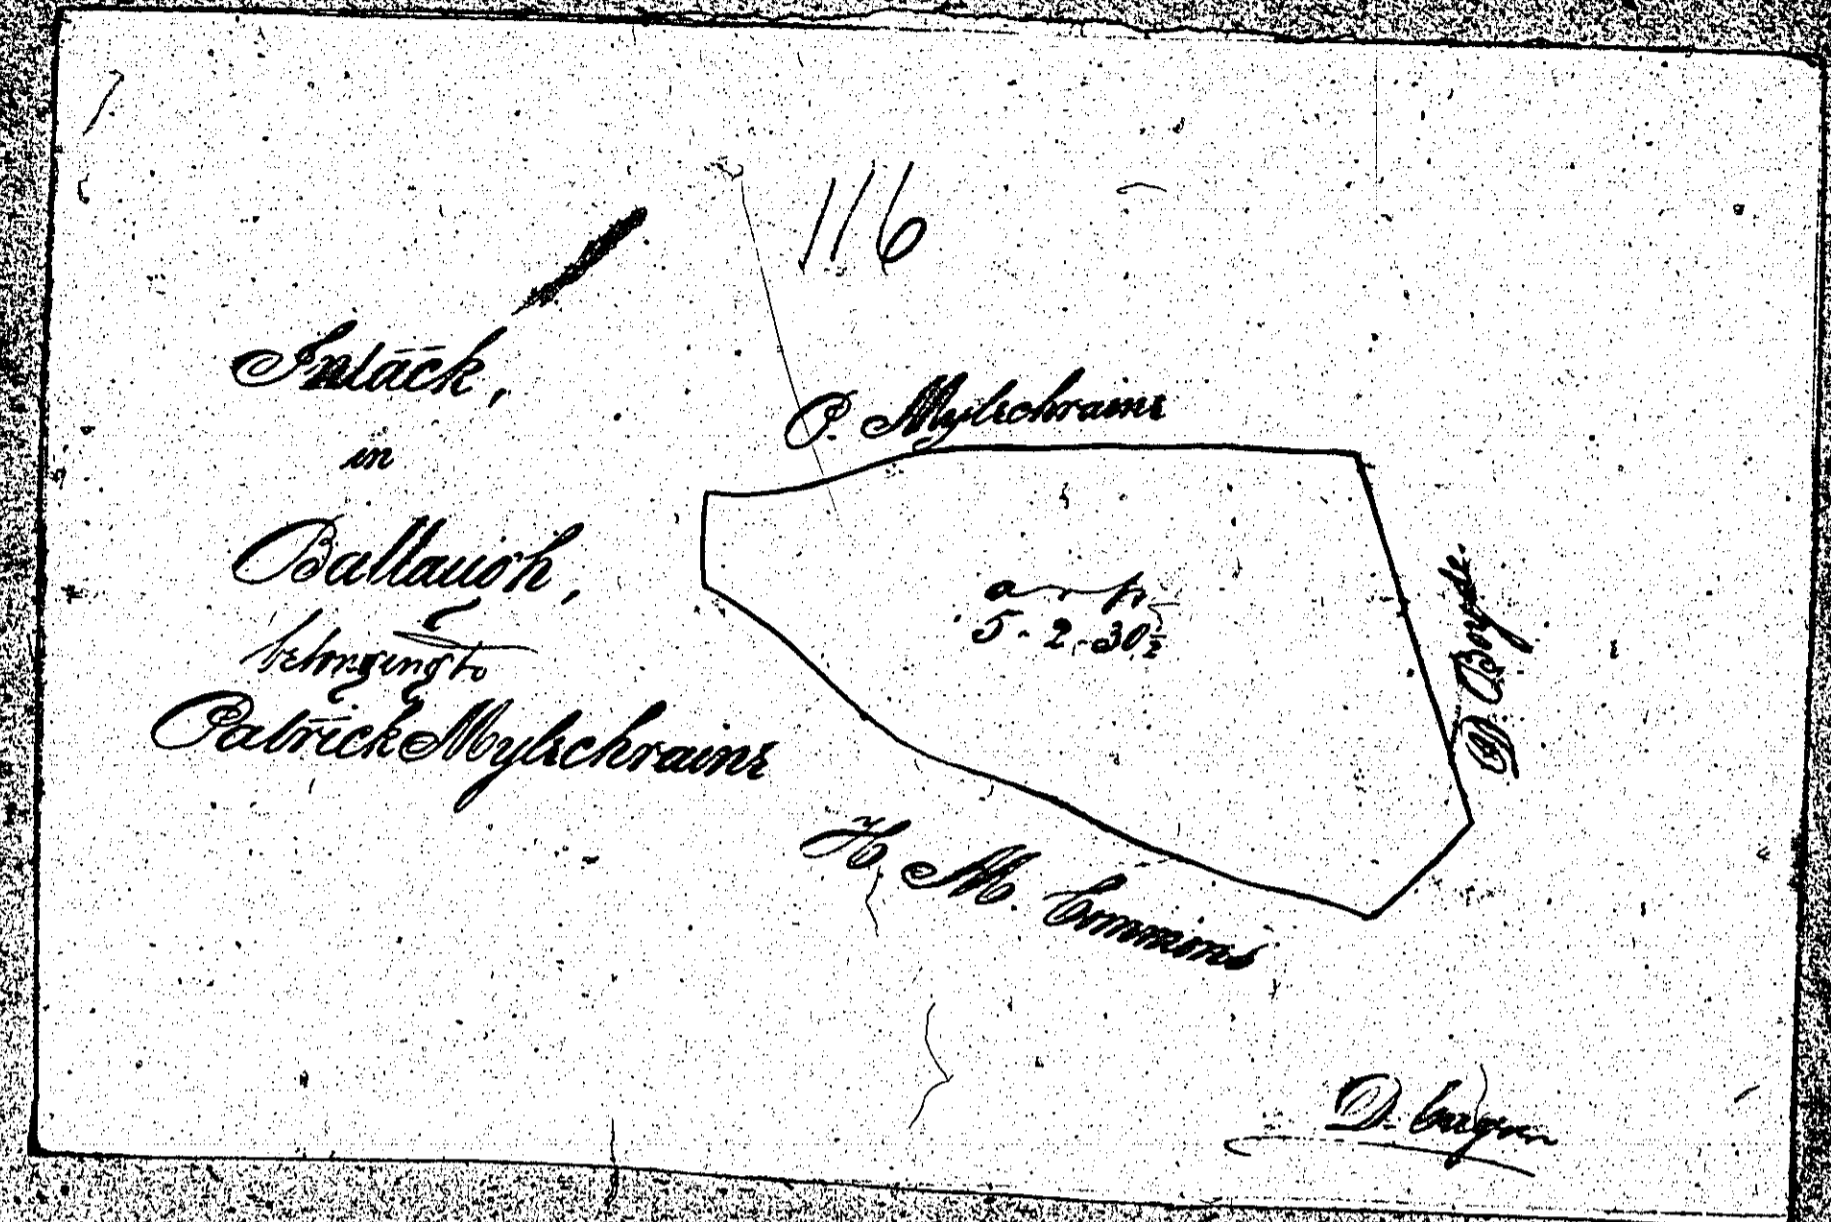 116
Intack,
in
Ballaugh,
belonging to
Patrick Mylechraine
P. Mylechraine
a r p
5 - 2 - 30 1/2
D. Boyde.
H. M. Commons
D. Cagen